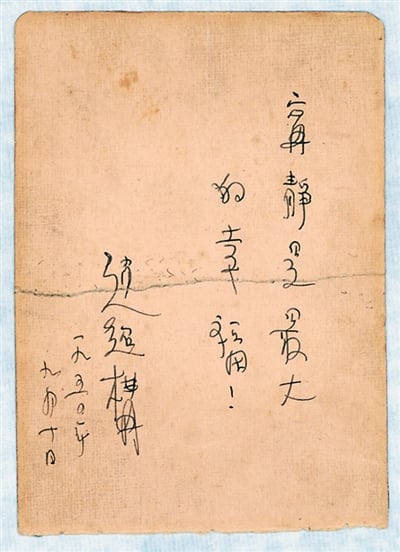 寧靜是最大
的幸福！
趙超構
一九五〇年
九月十日